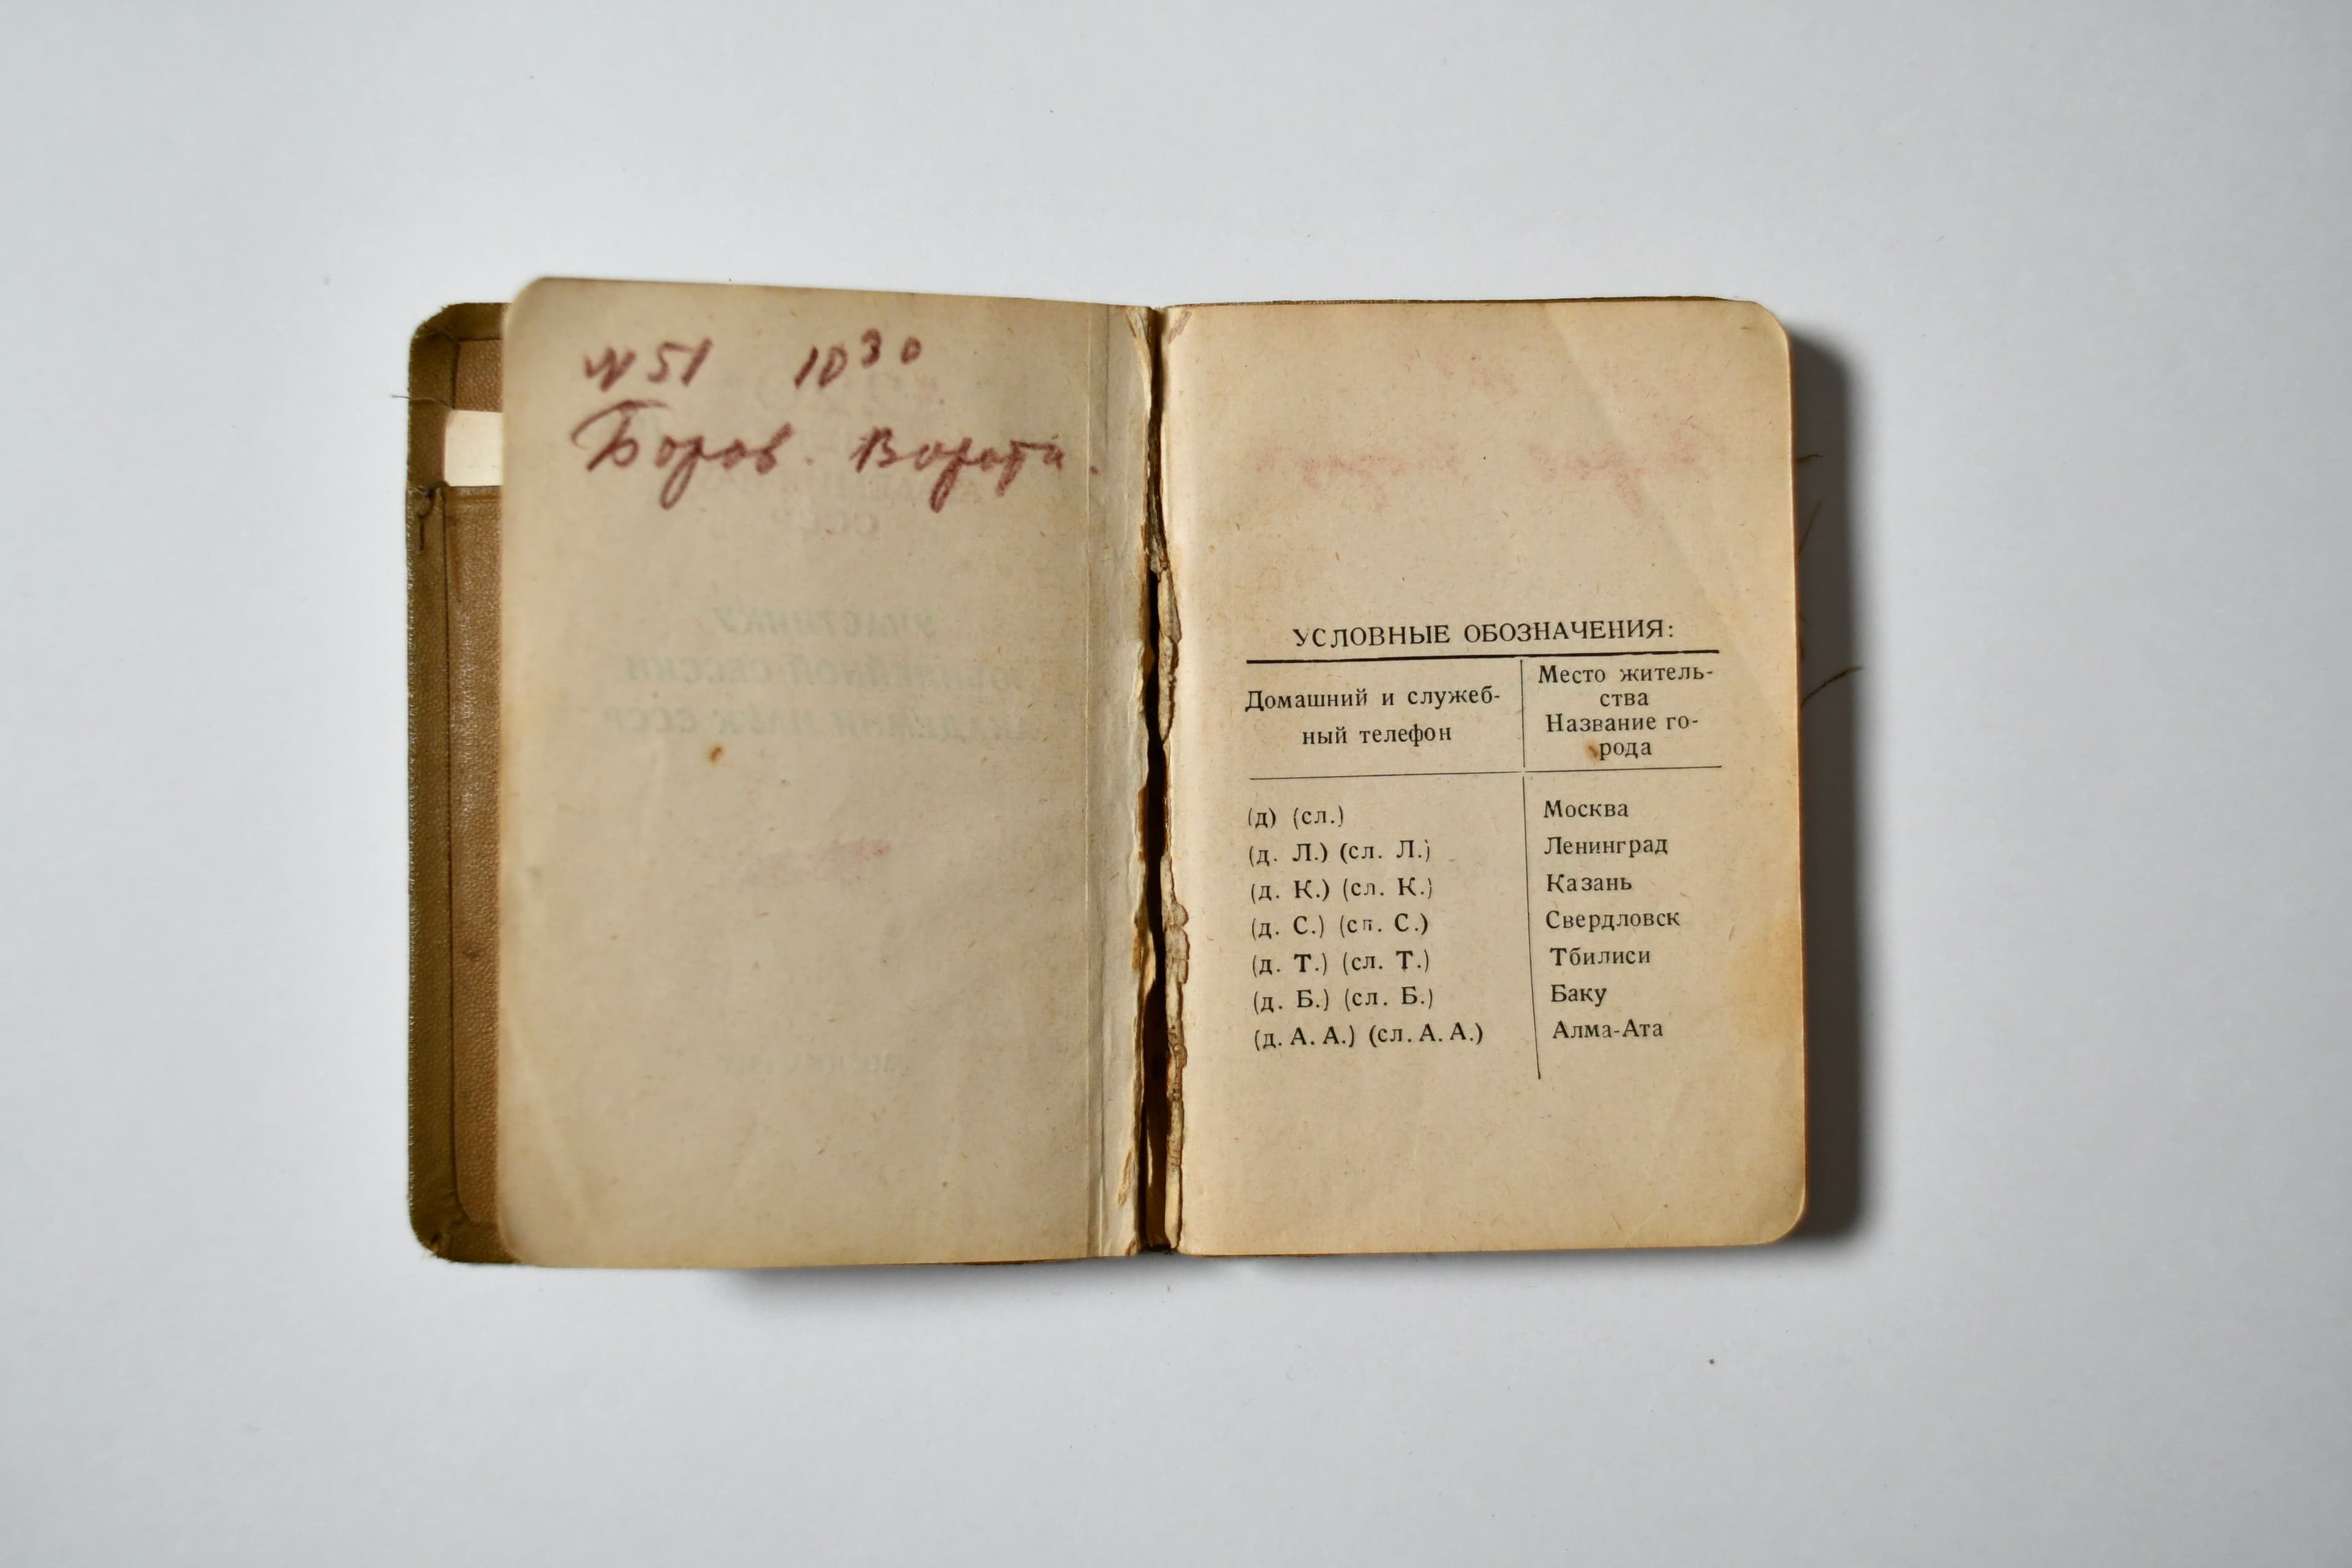 № 51 10³⁰
Боров. Ворота.
УЧАСТНИКУ
ЮБИЛЕЙНОЙ СЕССИИ
АКАДЕМИИ НАУК СССР
УСЛОВНЫЕ ОБОЗНАЧЕНИЯ:
Домашний и служеб-
ный телефон
Место житель-
ства
Название го-
рода
(д) (сл.) Москва
(д. Л.) (сл. Л.) Ленинград
(д. К.) (сл. К.) Казань
(д. С.) (сл. С.) Свердловск
(д. Т.) (сл. Т.) Тбилиси
(д. Б.) (сл. Б.) Баку
(д. А. А.) (сл. А. А.) Алма-Ата